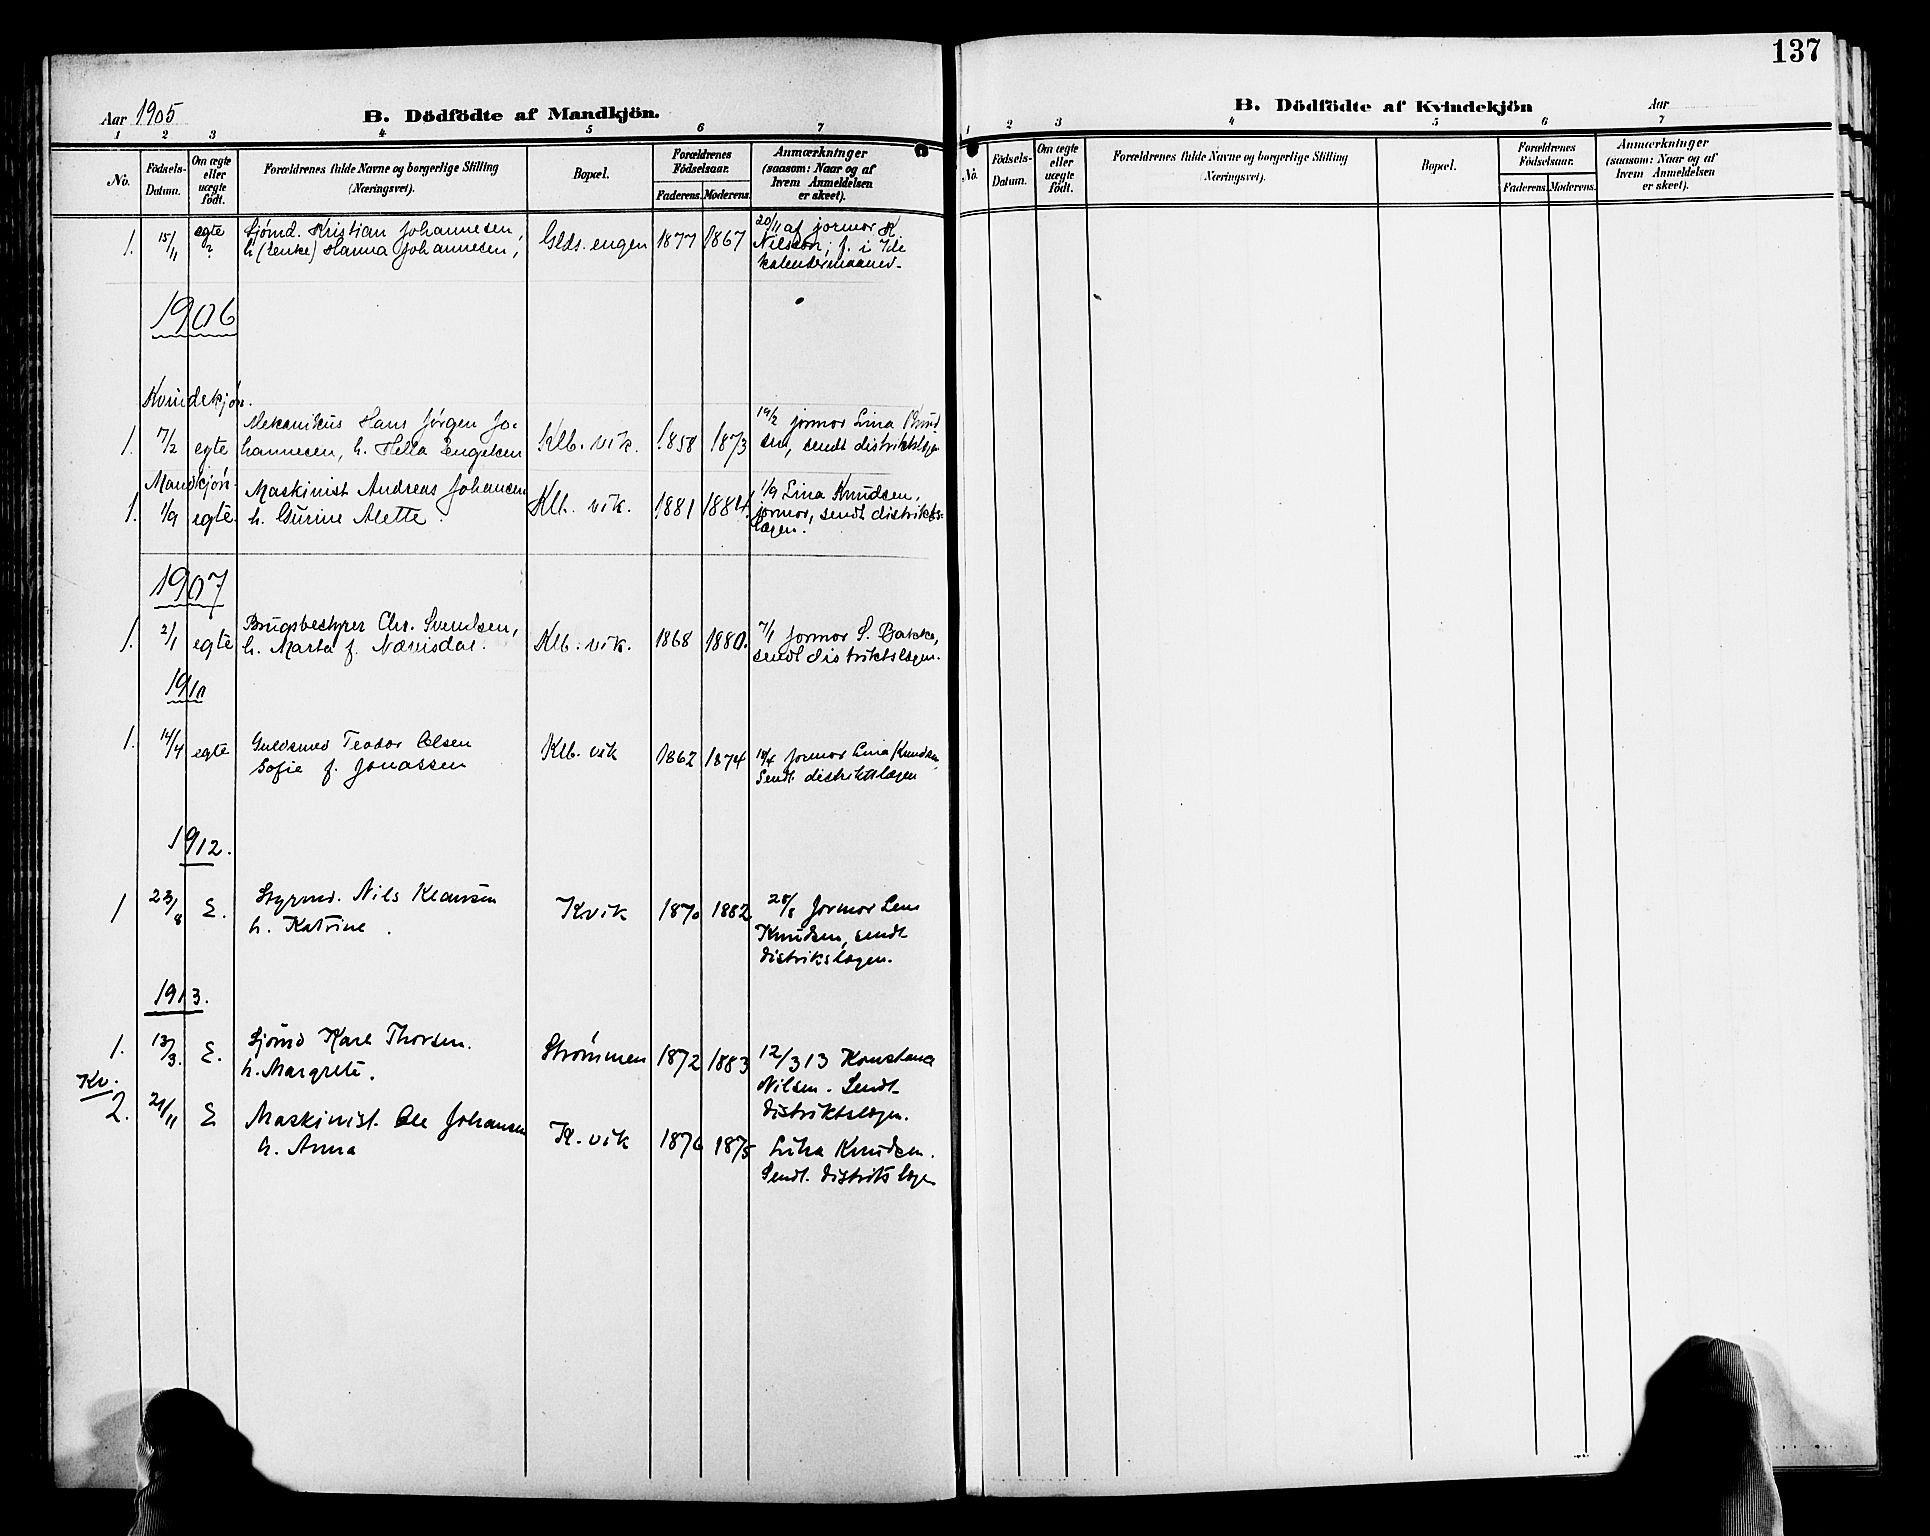 137
Aar 1905
B. Dödfödte af Mandkjön.
1 2 3 4 5 6 7
No.
Födsels-Datum.
Om ægte eller uægte født.
Forældrenes fulde Navne og borgerlige Stilling
(Næringsvei).
Bopæl.
Forældrenes Födselsaar.
Faderens. Moderens.
Anmærkninger
(saasom: Naar og af
hvem Anmeldelsen
er skeet).
1. 15/11 egte ? Sjømd. Kristian Johannesen, Glds. engen 1877 1867 20/11 af jormor K
h. (enke) Hanna Johannesen, Nilsson; f. i 7de
kalendermaaned.
1906
Kvindekjøn.
1. 7/2 egte Mekanikus Hans Jørgen Jo- Klb. vik. 1858 1873 19/2 jormor Lina Knud
hannesen, h. Hella Engelsen sen, sendt distriktslægen
Mandkjøn.
1. 1/9 egte. Maskinist Andreas Johansen Klb. vik. 1881 1884. 1/9 Lina Knudsen,
h. Gurine Alette. jormor, sendt distrikts-
lægen.
1907
1. 2/1 egte Brugsbestyrer Chr. Svendsen, Klb. vik. 1868 1880. 7/1 jormor S. Bakke,
h. Marta f. sendt distriktslægen.
1910
1. 14/4 egte Guldsmed Teodor Olsen Klb. vik 1862 1874 18/4 Jormor Lina Knudsen,
Sofie f. Jonassen Sendt distriktslægen
1912.
1 23/8 E. Styrmd. Nils Klausen Kvik 1870 1882 28/8 Jormor Lina
h. Katrine. Knudsen, sendt
distrikslægen.
1913.
1. 13/3. E. Sjømd Karl Thorsen. Strømmen 1872 1883 12/3 13 Konstance
h. Margrete. Nilsen. Sendt
distriktslægen.
Kv.
2. 21/11 E Maskinist. Ole Johansen K. vik 1876 1875 Lina Knudsen.
h. Anna Sendt. distrikts lægen
B. Dödfödte af Kvindekjön
Aar
1 2 3 4 5 6 7
No.
Födsels-Datum.
Om ægte eller uægte födt.
Forældrenes fulde Navne og borgerlige Stilling
(Næringsvei).
Bopæl.
Forældrenes Födselsaar.
Faderens. Moderens.
Anmærkninger
(saasom: Naar og af
hvem Anmeldelsen
er skeet).